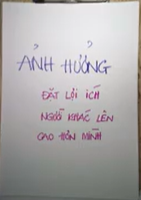 ẢNH HƯỞNG
ĐẶT LỢI ÍCH
NGƯỜI KHÁC LÊN
CAO HƠN MÌNH